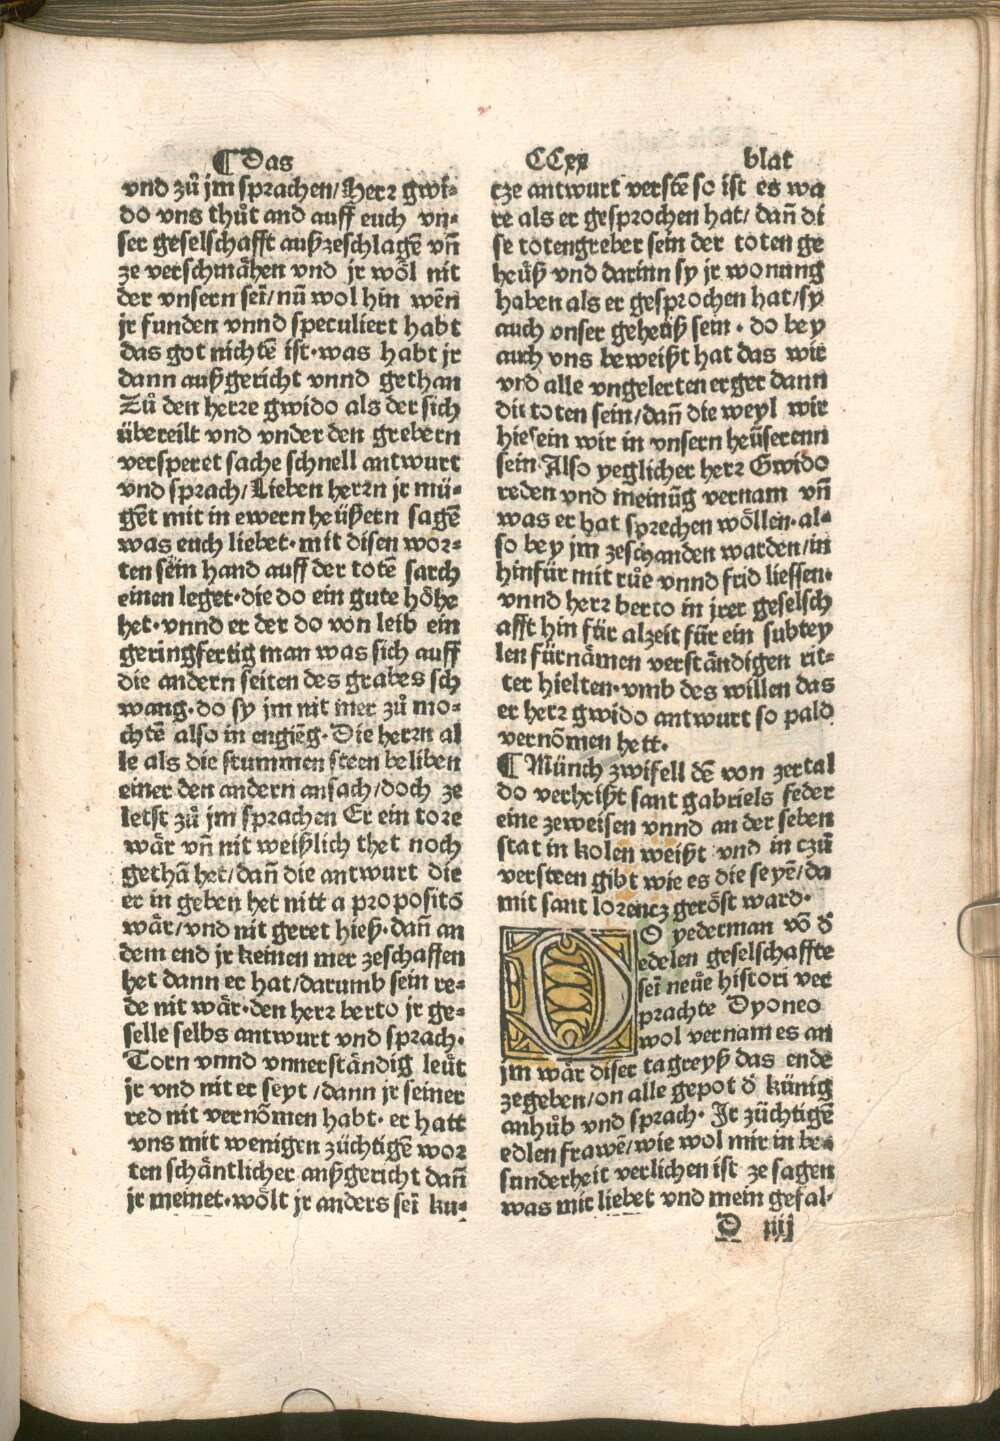 ¶ Das CCxx blat
vnd zů jm sprachen/Herr gwi⸗
do vns thůt and auff euch vn⸗
ser geselschafft außzeschlagē vn̄
ze verschmåhen vnd jr wo̊l nit
der vnsern sei/nū wol hin wēn
jr funden vnnd speculiert habt
das got nichtē ist·was habt jr
dann außgericht vnnd gethan
Zů den herre gwido als der sich
übereilt vnd vnder den grebern
versperet sache schnell antwurt
vnd sprach/Lieben herrn jr mü⸗
gēt mit in ewern heüßern sagē
was euch liebet·mit disen wor⸗
ten sein hand auff der totē sarch
einen leget·die do ein gute ho̊he
het·vnnd er der do von leib ein
geringfertig man was sich auff
die andern seiten des grabes sch
wang·do sy jm nit mer zů mo⸗
chtē also in engieng·Die herrn al
le als die stummen steen beliben
einer den andern ansach/doch ze
letst zů jm sprachen Er ein tore
wår vn̄ nit weißlich thet noch
gethā het/dan̄ die antwurt die
er in geben het nitt a propositō
wår/vnd nit geret hieß·dan̄ an
dem end jr keinen mer zeschaffen
het dann er hat/darumb sein re⸗
de nit wår·den herr berto jr ge⸗
selle selbs antwurt vnd sprach·
Torn vnnd vnnerståndig leüt
jr vnd nit er seyt/dann jr seiner
red nit vernōmen habt·er hatt
vns mit wenigen züchtigē wor
ten schåntlicher außgericht dan̄
jr meinet·wo̊lt jr anders sei ku⸗
rtze antwurt verstē so ist es wa
re als er gesprochen hat/dan̄ di
se totengreber sein der toten ge
heüß vnd darinn sy jr wonung
haben als er gesprochen hat/sy
auch vnser geheüß sein·do bey
auch vns beweißt hat das wir
vnd alle vngelerten erger dann
die toten sein/dan̄ die weyl wir
hie sein wir in vnsern heüserenn
sein·Also yeglicher herr Gwido
reden vnd meinūg vernam vn̄
was er hat sprechen wo̊llen·al⸗
so bey jm zeschanden warden/in
hinfür mit růe vnnd frid liessen·
vnnd herr berto in jrer geselsch
afft hin für alzeit für ein subtey
len fürnåmen verståndigen rit⸗
ter hielten·vmb des willen das
er herr gwido antwurt so pald
vernōmen hett·
¶ Münch zwifell dē von zertal
do verheißt sant gabriels feder
eine zeweisen vnnd an der seben
stat in kolen weißt vnd in czů
versteen gibt wie es die seyē/da
mit sant lorencz gero̊st ward·
DO yederman vō d̄
edelen geselschaffte
sei neüe histori ver
prachte Dyoneo
wol vernam es an
jm wår diser tagreyß das ende
zegeben/on alle gepot d̄ künig
anhůb vnd sprach·Ir züchtigē
edlen frawē/wie wol mir in be⸗
sunderheit verlichen ist ze sagen
was mir liebet vnd mein gefal⸗
D iiij